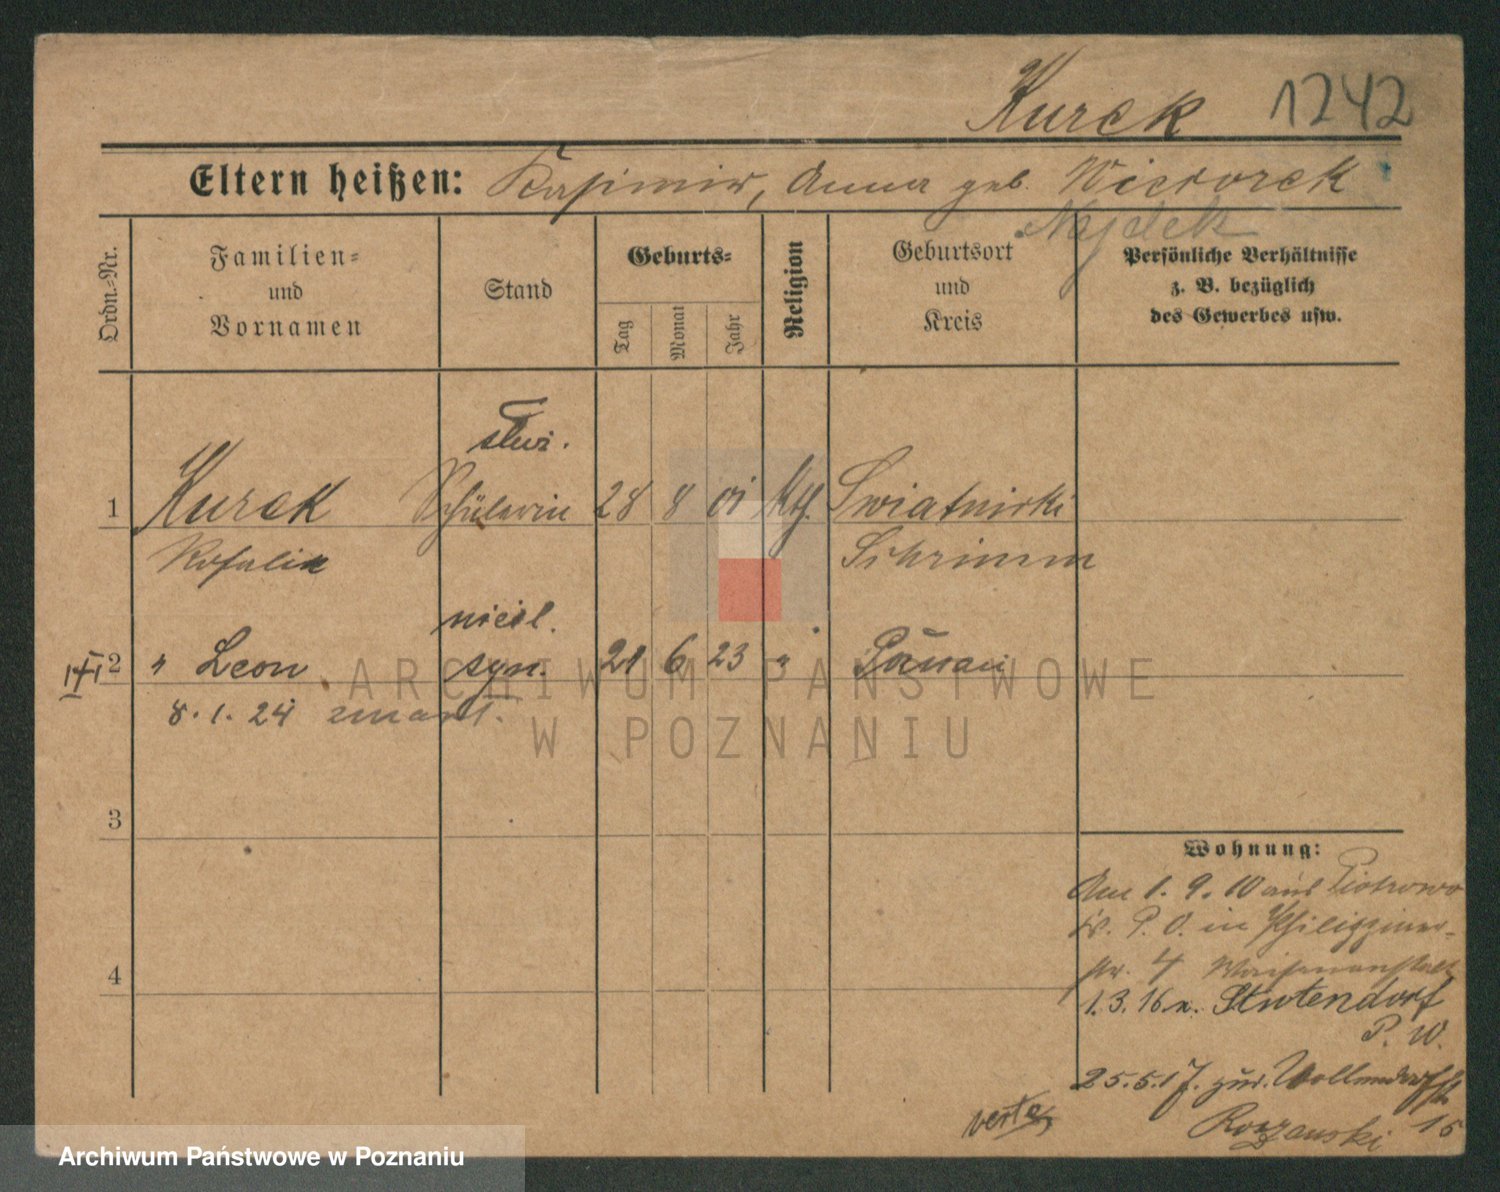 Kurek 1242
Eltern heißen: Kasimir, Anna geb. Wieczorek
Najdek
Ordn.-Nr.
Familien-
und
Vornamen
Stand
Geburts-
Tag
Monat
Jahr
Religion
Geburtsort
und
Kreis
Persönliche Verhältnisse
z. B. bezüglich
des Gewerbes usw.
1 Kurek Schülerin 28 8 01 kth. Swiatniczki
Rosalie Schrimm
nieśl.
2 " Leon syn. 21 6 23 " Poznań
8. 1. 24 zmarł.
3
4
Wohnung:
Am 1. 9. 10 aus Piotrowo
Kr. P. O. in Philippiner-
str. 4 Waisenanstalt
1. 3. 16 n. Stutendorf
P. W.
25. 5. 17. zur. Wollendorfstr.
15
verte
ARCHIWUM PAŃSTWOWE
W POZNANIU
Archiwum Państwowe w Poznaniu